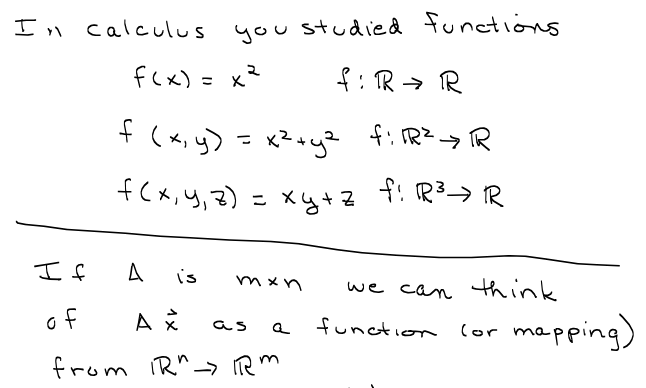 In calculus you studied functions
f(x) = x² f: ℝ → ℝ
f (x,y) = x²+y² f: ℝ² → ℝ
f(x,y,z) = xy+z f: ℝ³ → ℝ
If A is m×n we can think
of A x⃗ as a function (or mapping)
from ℝⁿ → ℝᵐ